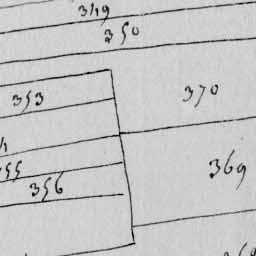 349
350
353
370
369
356